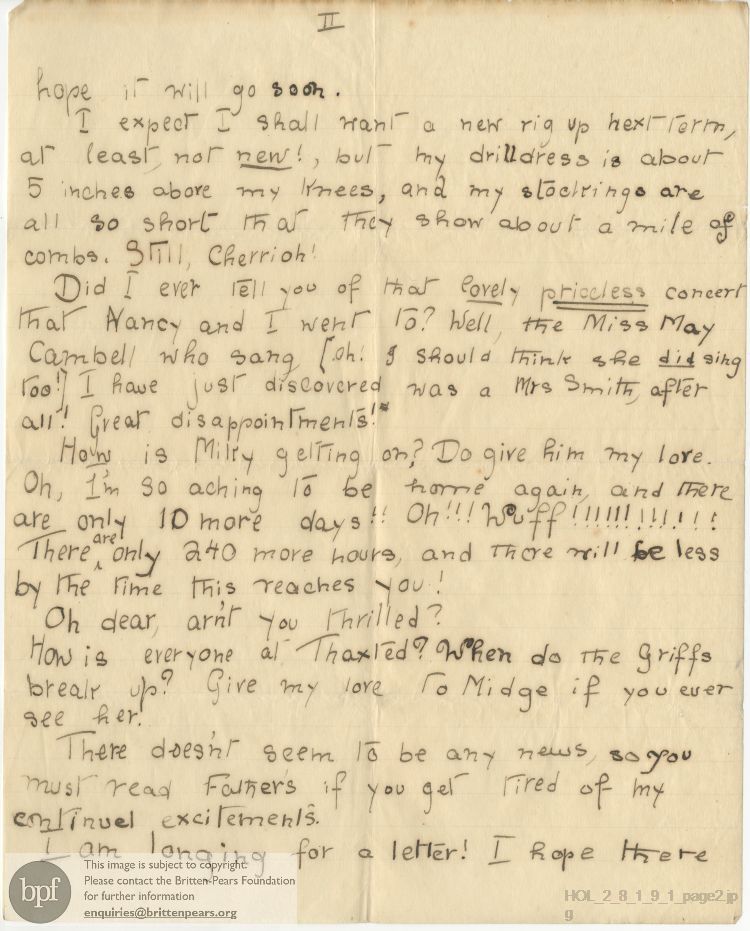 II
hope it will go soon.
I expect I shall want a new rig up next term,
at least, not new!, but my drilldress is about
5 inches above my knees, and my stockings are
all so short that they show about a mile of
combs. Still, Cherrioh!
Did I ever tell you of that lovely priceless concert
that Nancy and I went to? Well, the Miss May
Cambell who sang [oh! I should think she did sing
too!] I have just discovered was a Mrs Smith, after
all! Great disappointments!
How is Milky getting on? Do give him my love.
Oh, I'm so aching to be home again, and there
are only 10 more days!! Oh!!! Wuff!!!!!!!!!!!!!
There are only 240 more hours, and there will be less
by the time this reaches you!
Oh dear, arn't you thrilled?
How is everyone at Thaxted? When do the Griffs
break up? Give my love to Midge if you ever
see her.
There does'nt seem to be any news, so you
must read Father's if you get tired of my
continuel excitements.
I am longing for a letter! I hope there
bpf
This image is subject to copyright.
Please contact the Britten-Pears Foundation
for further information
enquiries@brittenpears.org
HOL_2_8_1_9_1_page2.jp
g